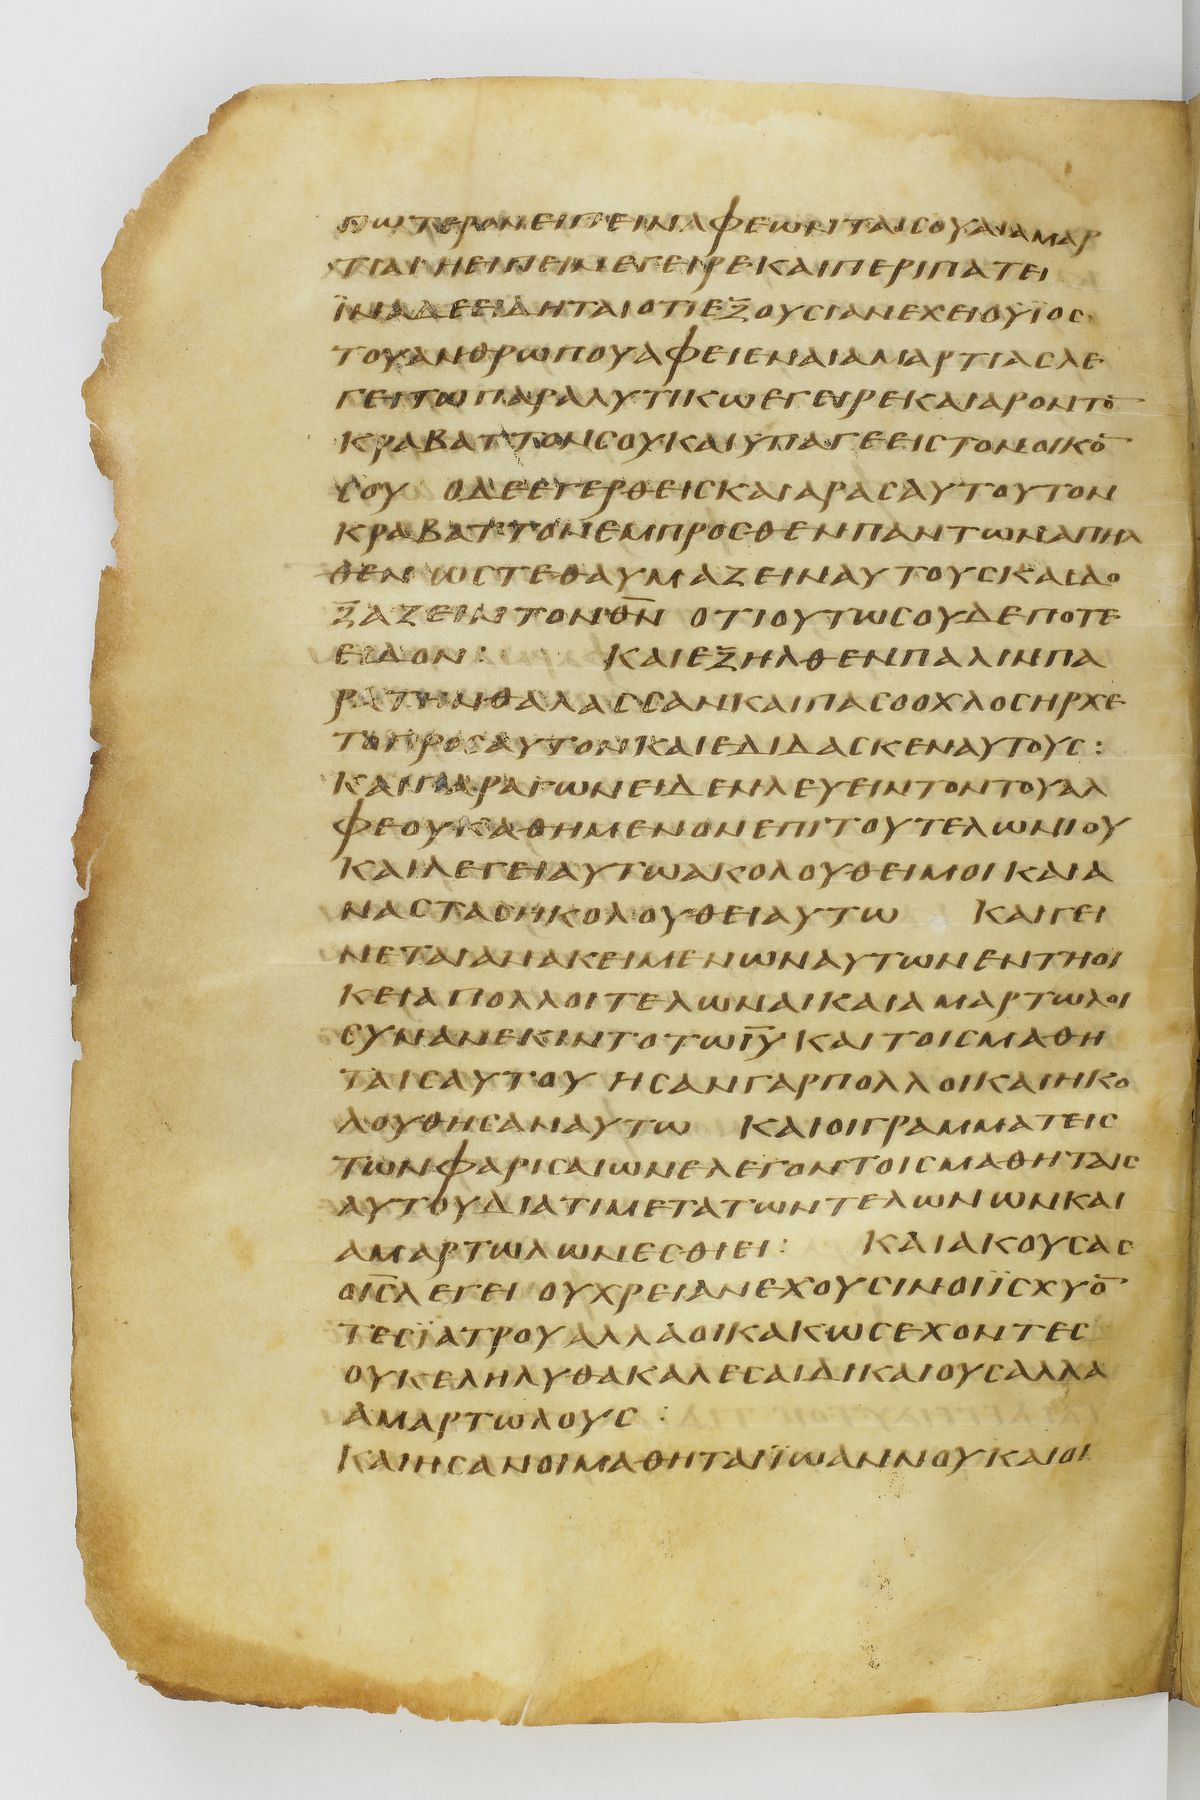 ΠΩΤΕΡΟΝ ΕΙΠΕΙΝ ΑΦΕΩΝΤΑΙ ΣΟΥ ΑΙ ΑΜΑΡ
ΤΙΑΙ Η ΕΙΠΕΙΝ ΕΓΕΙΡΕ ΚΑΙ ΠΕΡΙΠΑΤΕΙ
ΪΝΑ ΔΕ ΕΙΔΗΤΑΙ ΟΤΙ ΕΞΟΥΣΙΑΝ ΕΧΕΙ Ο ΥΪΟΣ
ΤΟΥ ΑΝΘΡΩΠΟΥ ΑΦΕΙΕΝΑΙ ΑΜΑΡΤΙΑΣ ΛΕ
ΓΕΙ ΤΩ ΠΑΡΑΛΥΤΙΚΩ ΕΓΕΙΡΕ ΚΑΙ ΑΡΟΝ ΤΟ̅
ΚΡΑΒΑΤΤΟΝ ΣΟΥ ΚΑΙ ΥΠΑΓΕ ΕΙΣ ΤΟΝ ΟΙΚΟ̅
ΣΟΥ Ο ΔΕ ΕΓΕΡΘΕΙΣ ΚΑΙ ΑΡΑΣ ΑΥΤΟΥ ΤΟΝ
ΚΡΑΒΑΤΤΟΝ ΕΜΠΡΟΣΘΕΝ ΠΑΝΤΩΝ ΑΠΗΛ
ΘΕΝ ΩΣΤΕ ΘΑΥΜΑΖΕΙΝ ΑΥΤΟΥΣ ΚΑΙ ΔΟ
ΞΑΖΕΙΝ ΤΟΝ Θ̅Ν̅ ΟΤΙ ΟΥΤΩΣ ΟΥΔΕΠΟΤΕ
ΕΙΔΟΝ: ΚΑΙ ΕΞΗΛΘΕΝ ΠΑΛΙΝ ΠΑ
ΡΑ ΤΗΝ ΘΑΛΑΣΣΑΝ ΚΑΙ ΠΑΣ Ο ΟΧΛΟΣ ΗΡΧΕ
ΤΟ ΠΡΟΣ ΑΥΤΟΝ ΚΑΙ ΕΔΙΔΑΣΚΕΝ ΑΥΤΟΥΣ:
ΚΑΙ ΠΑΡΑΓΩΝ ΕΙΔΕΝ ΛΕΥΕΙΝ ΤΟΝ ΤΟΥ ΑΛ
ΦΕΟΥ ΚΑΘΗΜΕΝΟΝ ΕΠΙ ΤΟΥ ΤΕΛΩΝΙΟΥ
ΚΑΙ ΛΕΓΕΙ ΑΥΤΩ ΑΚΟΛΟΥΘΕΙ ΜΟΙ ΚΑΙ Α
ΝΑΣΤΑΣ ΗΚΟΛΟΥΘΕΙ ΑΥΤΩ ΚΑΙ ΓΕΙ
ΝΕΤΑΙ ΑΝΑΚΕΙΜΕΝΩΝ ΑΥΤΩΝ ΕΝ ΤΗ ΟΙ
ΚΕΙΑ ΠΟΛΛΟΙ ΤΕΛΩΝΑΙ ΚΑΙ ΑΜΑΡΤΩΛΟΙ
ΣΥΝΑΝΕΚΙΝΤΟ ΤΩ Ι̅Υ̅ ΚΑΙ ΤΟΙΣ ΜΑΘΗ
ΤΑΙΣ ΑΥΤΟΥ ΗΣΑΝ ΓΑΡ ΠΟΛΛΟΙ ΚΑΙ ΗΚΟ
ΛΟΥΘΗΣΑΝ ΑΥΤΩ ΚΑΙ ΟΙ ΓΡΑΜΜΑΤΕΙΣ
ΤΩΝ ΦΑΡΙΣΑΙΩΝ ΕΛΕΓΟΝ ΤΟΙΣ ΜΑΘΗΤΑΙΣ
ΑΥΤΟΥ ΔΙΑ ΤΙ ΜΕΤΑ ΤΩΝ ΤΕΛΩΝΩΝ ΚΑΙ
ΑΜΑΡΤΩΛΩΝ ΕΣΘΙΕΙ: ΚΑΙ ΑΚΟΥΣΑΣ
Ο Ι̅Σ̅ ΛΕΓΕΙ ΟΥ ΧΡΕΙΑΝ ΕΧΟΥΣΙΝ ΟΙ ΪΣΧΥΟ̅
ΤΕΣ ΪΑΤΡΟΥ ΑΛΛΑ ΟΙ ΚΑΚΩΣ ΕΧΟΝΤΕΣ
ΟΥΚ ΕΛΗΛΥΘΑ ΚΑΛΕΣΑΙ ΔΙΚΑΙΟΥΣ ΑΛΛΑ
ΑΜΑΡΤΩΛΟΥΣ:
ΚΑΙ ΗΣΑΝ ΟΙ ΜΑΘΗΤΑΙ ΪΩΑΝΝΟΥ ΚΑΙ ΟΙ